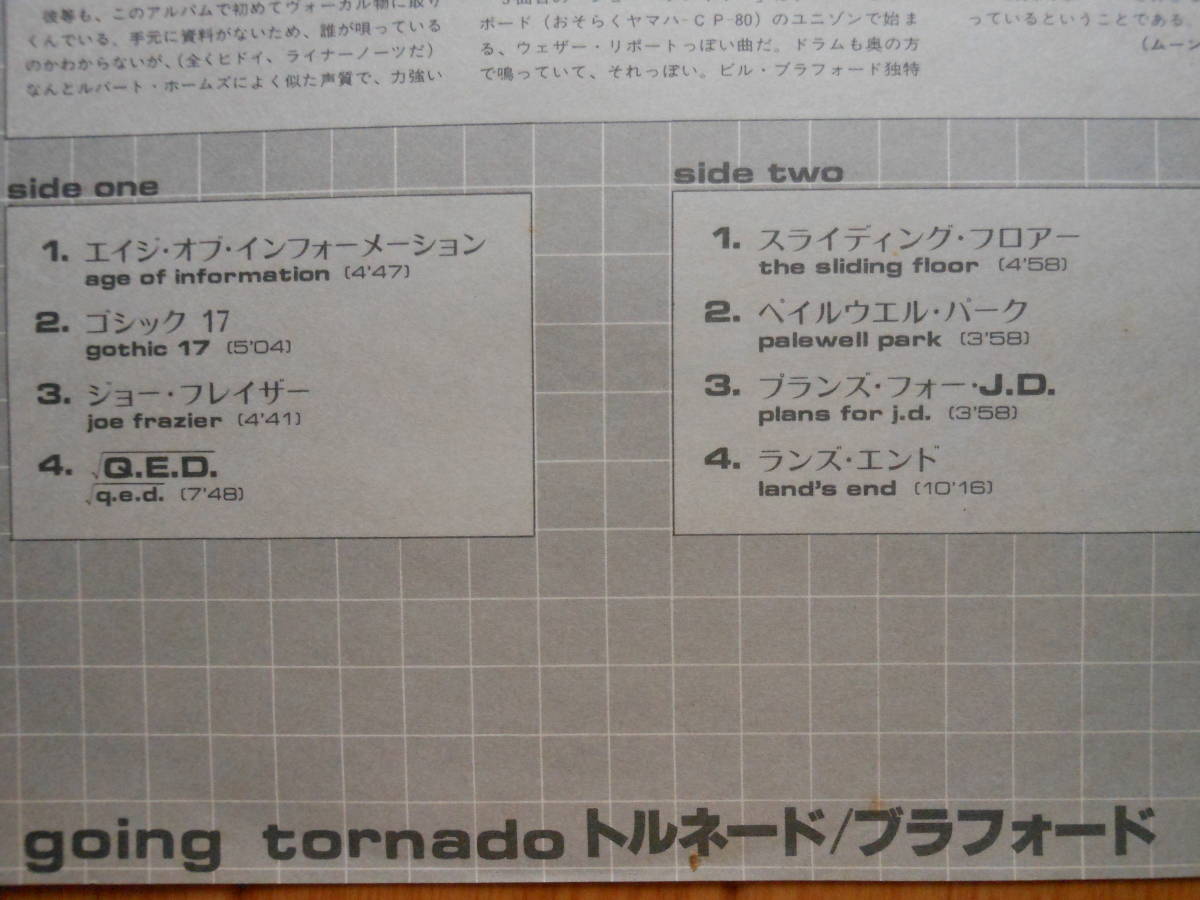 彼等も、このアルバムで初めてヴォーカル物に取り
くんでいる。手元に資料がないため、誰が唄っている
のかわからないが、(全くヒドイ、ライナーノーツだ)
なんとルパート・ホームズによく似た声質で、力強い
ボード(おそらくヤマハ-CP-80)のユニゾンで始ま
る、ウェザー・リポートっぽい曲だ。ドラムも奥の方
で鳴っていて、それっぽい。ビル・ブラフォード独特
っているということである。
(ムーン
side one
1. エイジ・オブ・インフォーメーション
age of information (4'47)
2. ゴシック 17
gothic 17 (5'04)
3. ジョー・フレイザー
joe frazier (4'41)
4. √Q.E.D.
√q.e.d. (7'48)
side two
1. スライディング・フロアー
the sliding floor (4'58)
2. ペイルウエル・パーク
palewell park (3'58)
3. プランズ・フォー・J.D.
plans for j.d. (3'58)
4. ランズ・エンド
land's end (10'16)
going tornado トルネード/ブラフォード